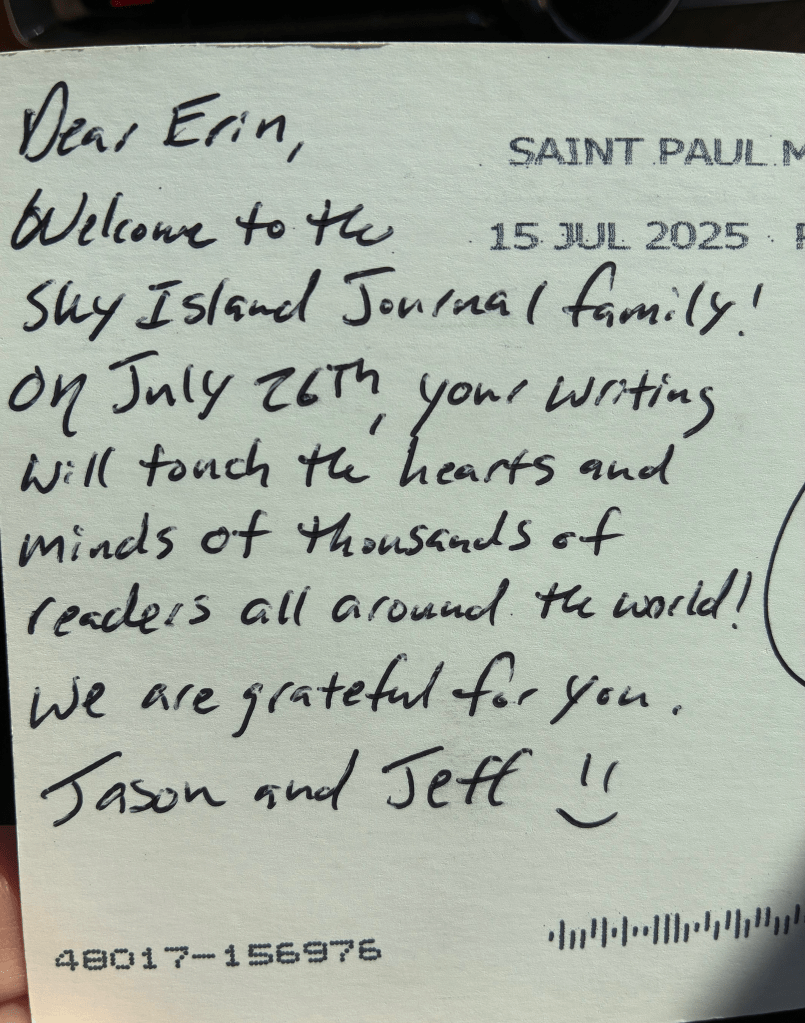 Dear Erin,
SAINT PAUL M
Welcome to the
15 JUL 2025
Sky Island Journal family!
On July 26th, your writing
will touch the hearts and
minds of thousands of
readers all around the world!
We are grateful for you.
Jason and Jeff
48017-156976